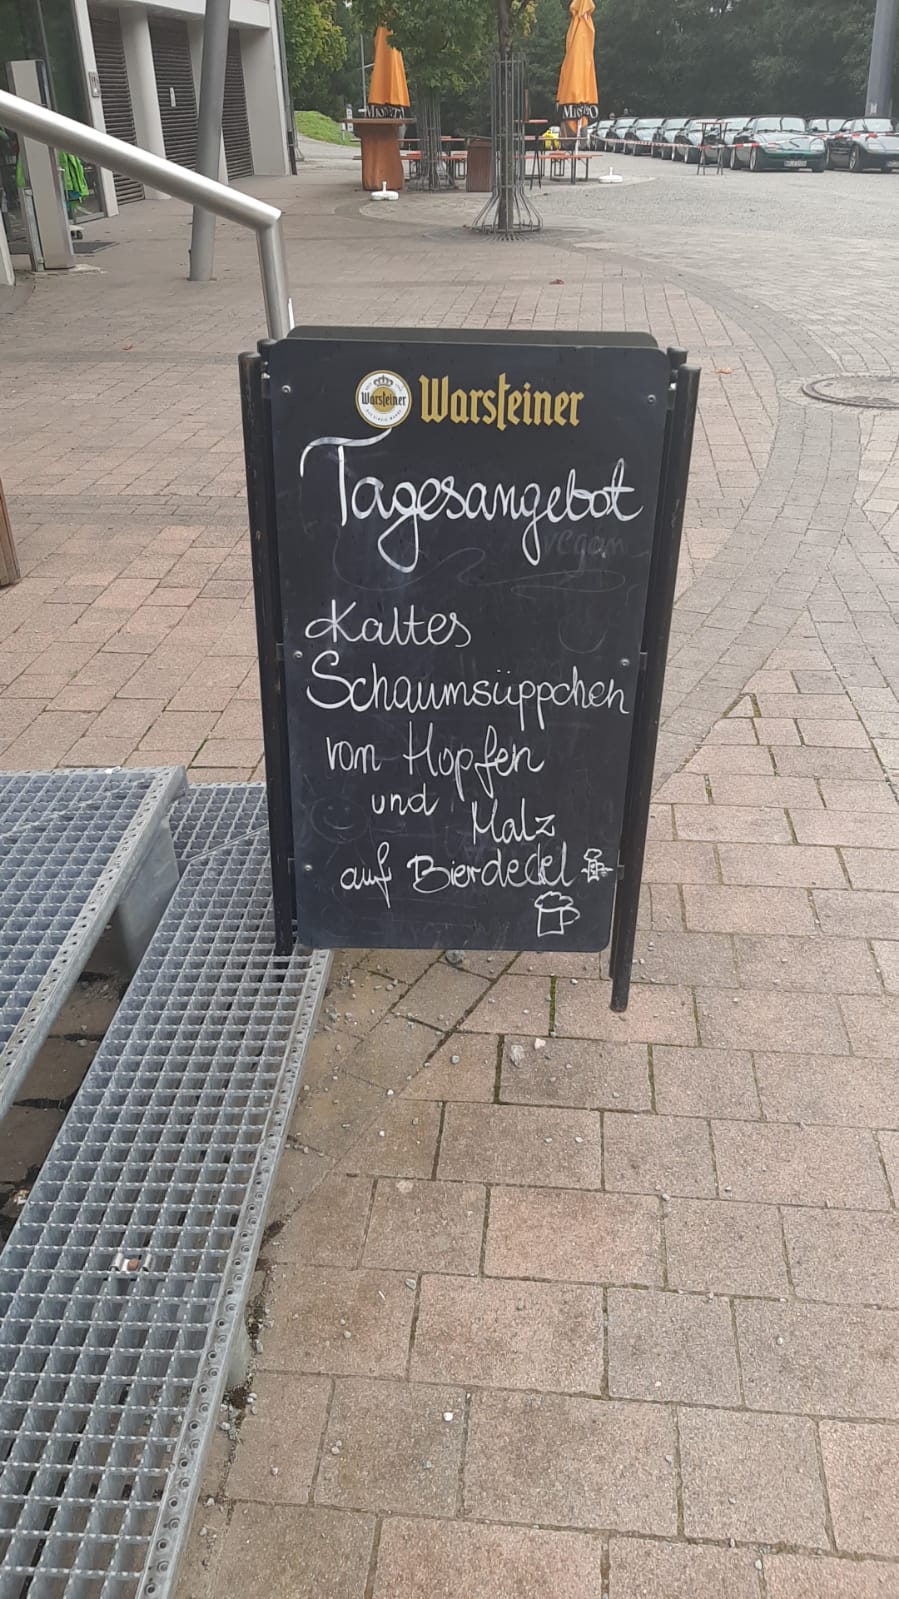 MISTO
MISTO
Warsteiner
Warsteiner
Tagesangebot
vegan
Kaltes
Schaumsüppchen
von Hopfen
und Malz
auf Bierdeckel